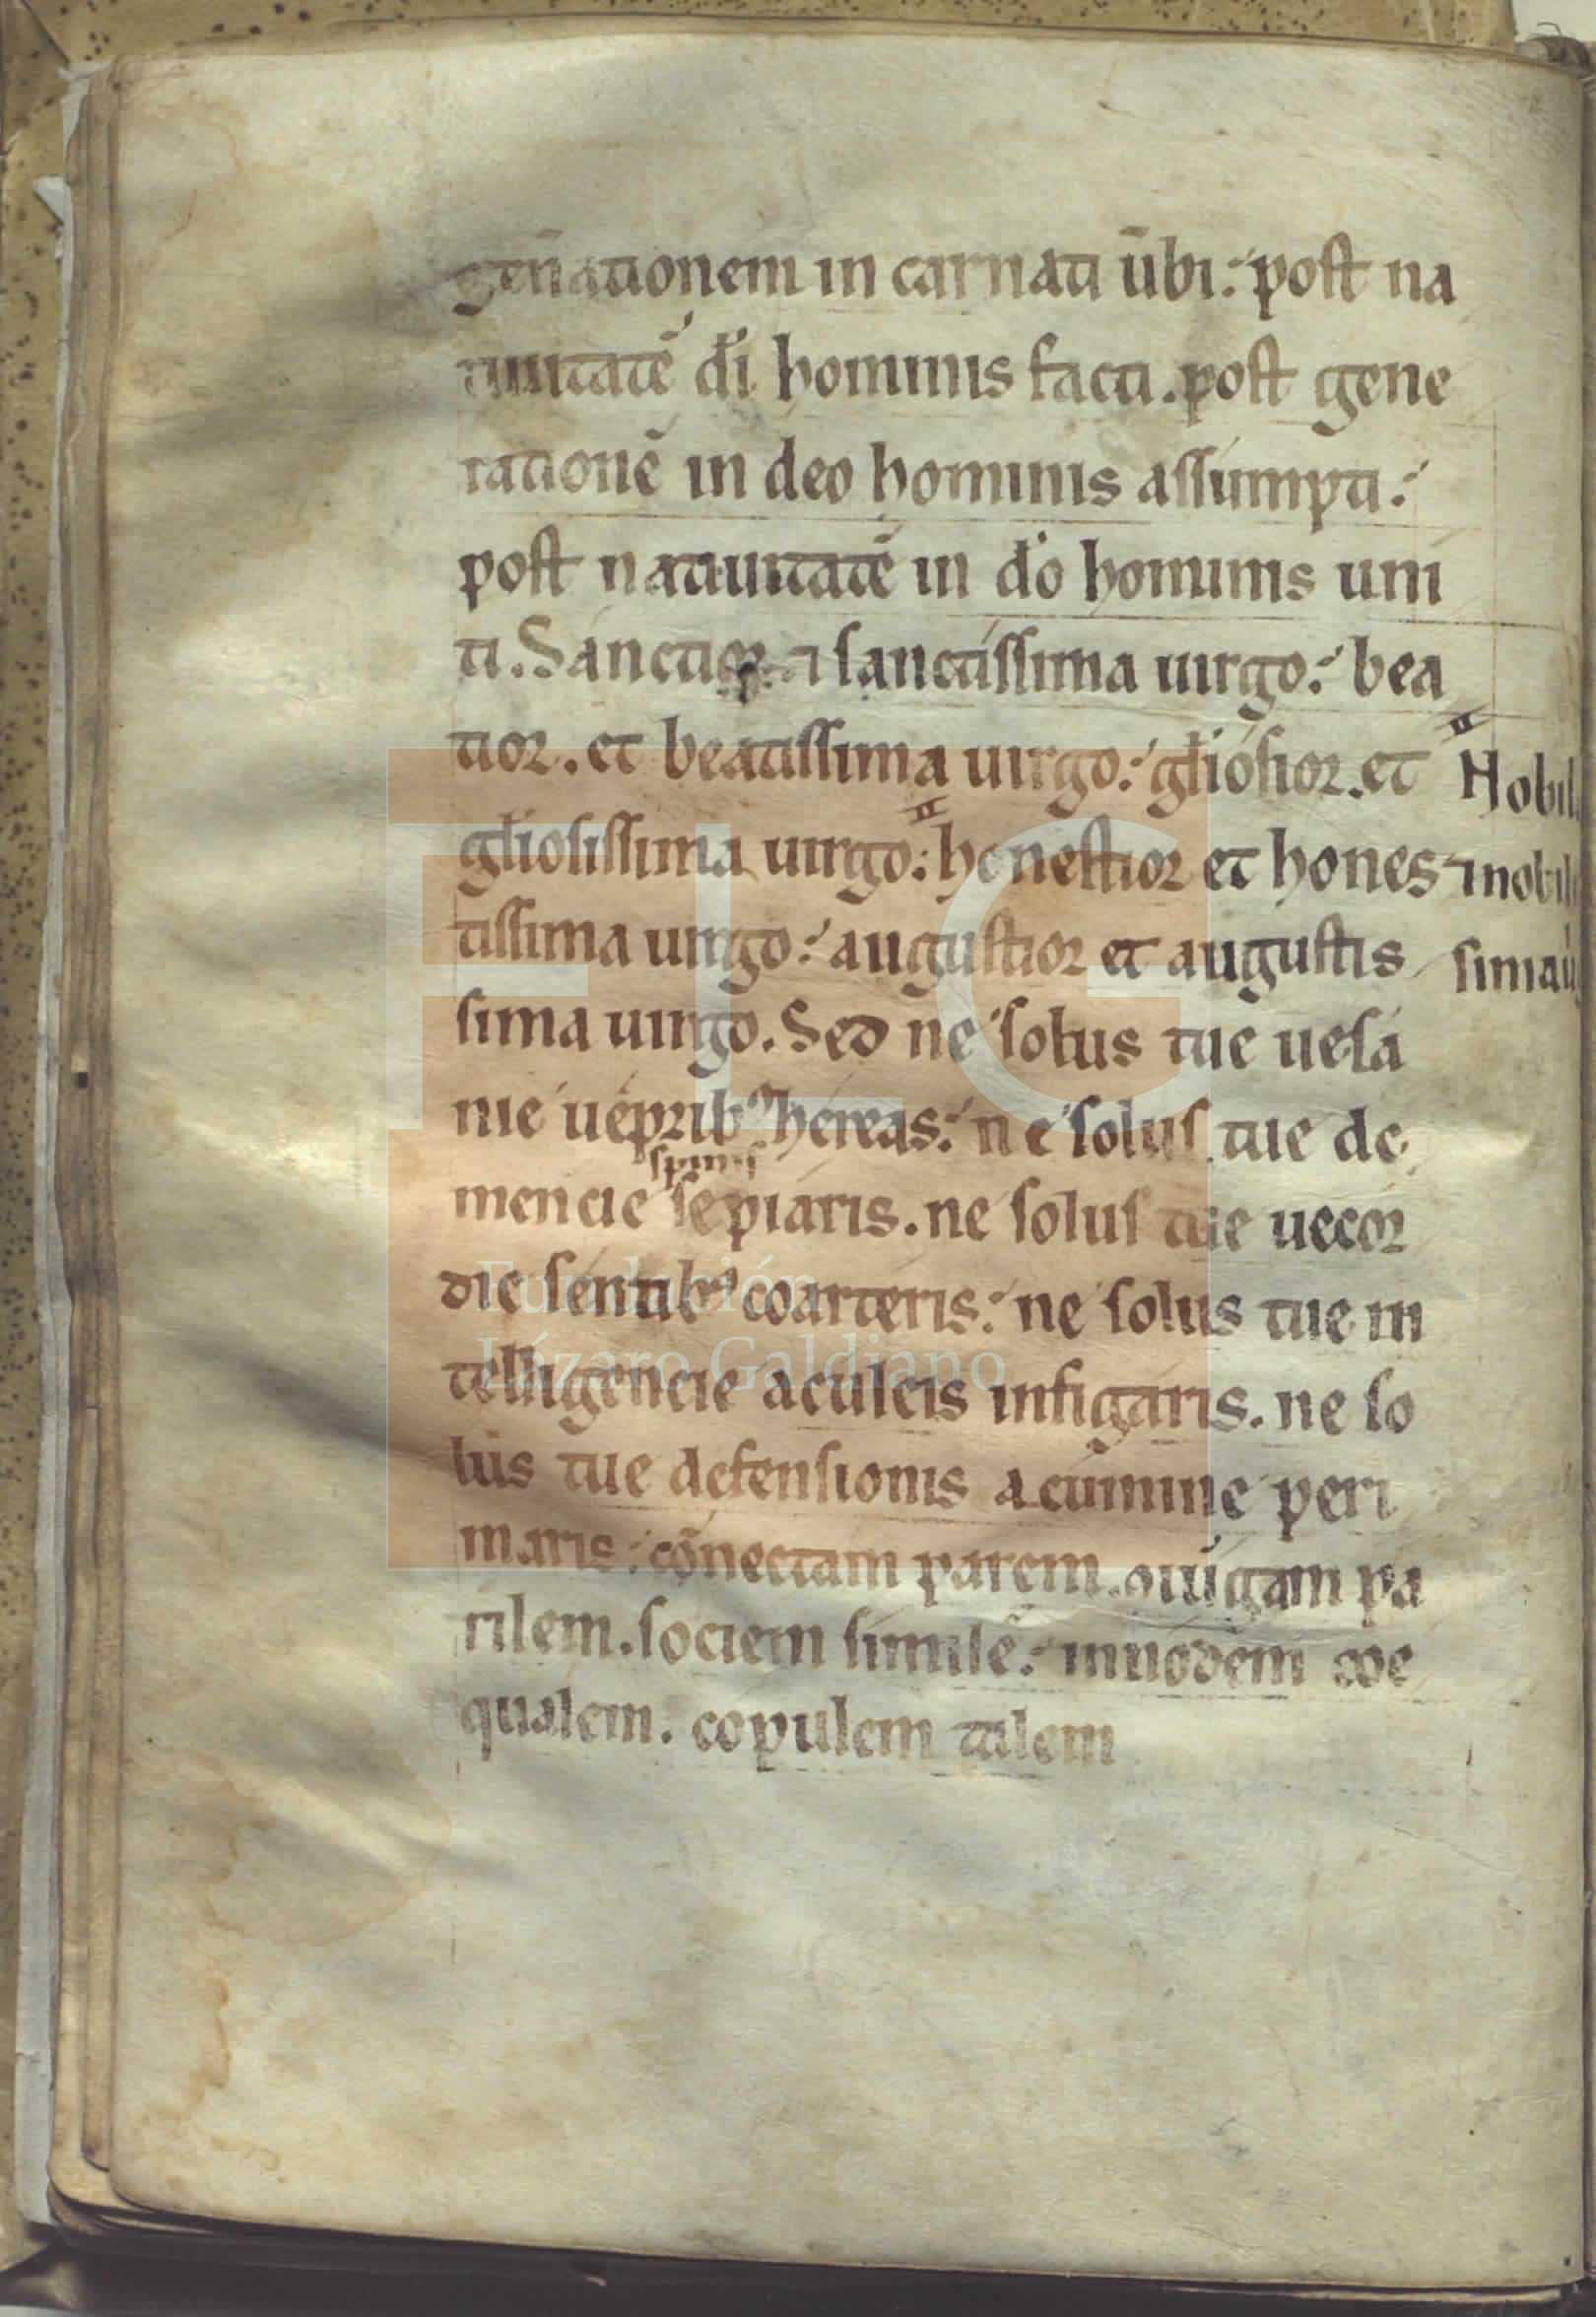 gen̄ationem in carnati ūbi: post na
tiuitatē dī hominis facti. post gene
rationē in deo hominis assumpti:
post natiuitatē in dō hominis uni
ti. Sanctior ⁊ sanctissima uirgo: bea
tior. et beatissima uirgo: gl̄iosior. et
gl̄iosissima uirgo: honestior et hones
tissima uirgo: augustior et augustis
sima uirgo. Sed ne solus tue uesa
nie uepribꝰ hereas: ne solus tue de
spinis
mencie sepiaris. ne solus tue uecor
die sentibꝰ coarteris: ne solus tue in
telligencie aculeis infigaris. ne so
lus tue defensionis acumine peri
maris: cōnectam parem. ꝯiūgam pa
rilem. sociem similē: innodem coe
qualem. copulem talem
Nobil
⁊ nobil
simau
Fundación
Lázaro Galdiano
FLG